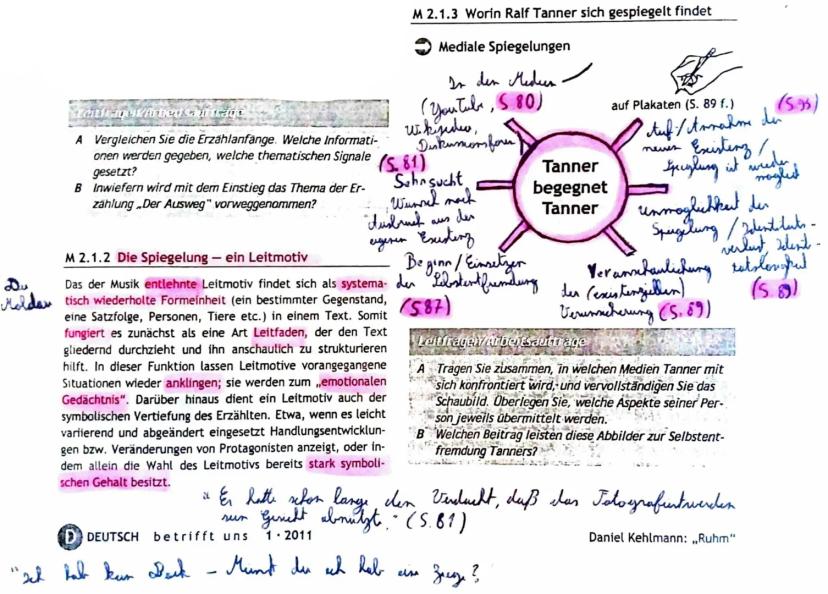 Leitfragen/Arbeitsaufträge
A Vergleichen Sie die Erzählanfänge. Welche Informati-
onen werden gegeben, welche thematischen Signale
gesetzt?
B Inwiefern wird mit dem Einstieg das Thema der Er-
zählung „Der Ausweg" vorweggenommen?
M 2.1.2 Die Spiegelung – ein Leitmotiv
Die
Moldau
Das der Musik entlehnte Leitmotiv findet sich als systema-
tisch wiederholte Formeinheit (ein bestimmter Gegenstand,
eine Satzfolge, Personen, Tiere etc.) in einem Text. Somit
fungiert es zunächst als eine Art Leitfaden, der den Text
gliedernd durchzieht und ihn anschaulich zu strukturieren
hilft. In dieser Funktion lassen Leitmotive vorangegangene
Situationen wieder anklingen; sie werden zum „emotionalen
Gedächtnis". Darüber hinaus dient ein Leitmotiv auch der
symbolischen Vertiefung des Erzählten. Etwa, wenn es leicht
variierend und abgeändert eingesetzt Handlungsentwicklun-
gen bzw. Veränderungen von Protagonisten anzeigt, oder in-
dem allein die Wahl des Leitmotivs bereits stark symboli-
schen Gehalt besitzt.
M 2.1.3 Worin Ralf Tanner sich gespiegelt findet
Mediale Spiegelungen
In den Medien
(YouTube, S. 80)
Wikipedia,
Diskussionsforen
(S. 81)
Sehnsucht
Wunsch nach
Ausbruch aus der
eigenen Existenz
Beginn / Einsetzen
der Selbstentfremdung
(S. 87)
Tanner
begegnet
Tanner
auf Plakaten (S. 89 f.)
Auf/Annahme der
neuen Existenz /
Spiegelung ist wieder
möglich
Unmöglichkeit der
Spiegelung / Identitäts-
verlust, Identi-
tätslosigkeit
(S. 89)
Veranschaulichung
der (existenziellen)
Verunsicherung (S. 89)
Leitfragen/Arbeitsaufträge
A Tragen Sie zusammen, in welchen Medien Tanner mit
sich konfrontiert wird, und vervollständigen Sie das
Schaubild. Überlegen Sie, welche Aspekte seiner Per-
son jeweils übermittelt werden.
B Welchen Beitrag leisten diese Abbilder zur Selbstent-
fremdung Tanners?
"Er hatte schon lange den Verdacht, daß das Fotografiertwerden
sein Gesicht abnützt." (S. 81)
DEUTSCH betrifft uns 1 · 2011
Daniel Kehlmann: „Ruhm"
"Ich hab kein – du ich hab eine Ziege?